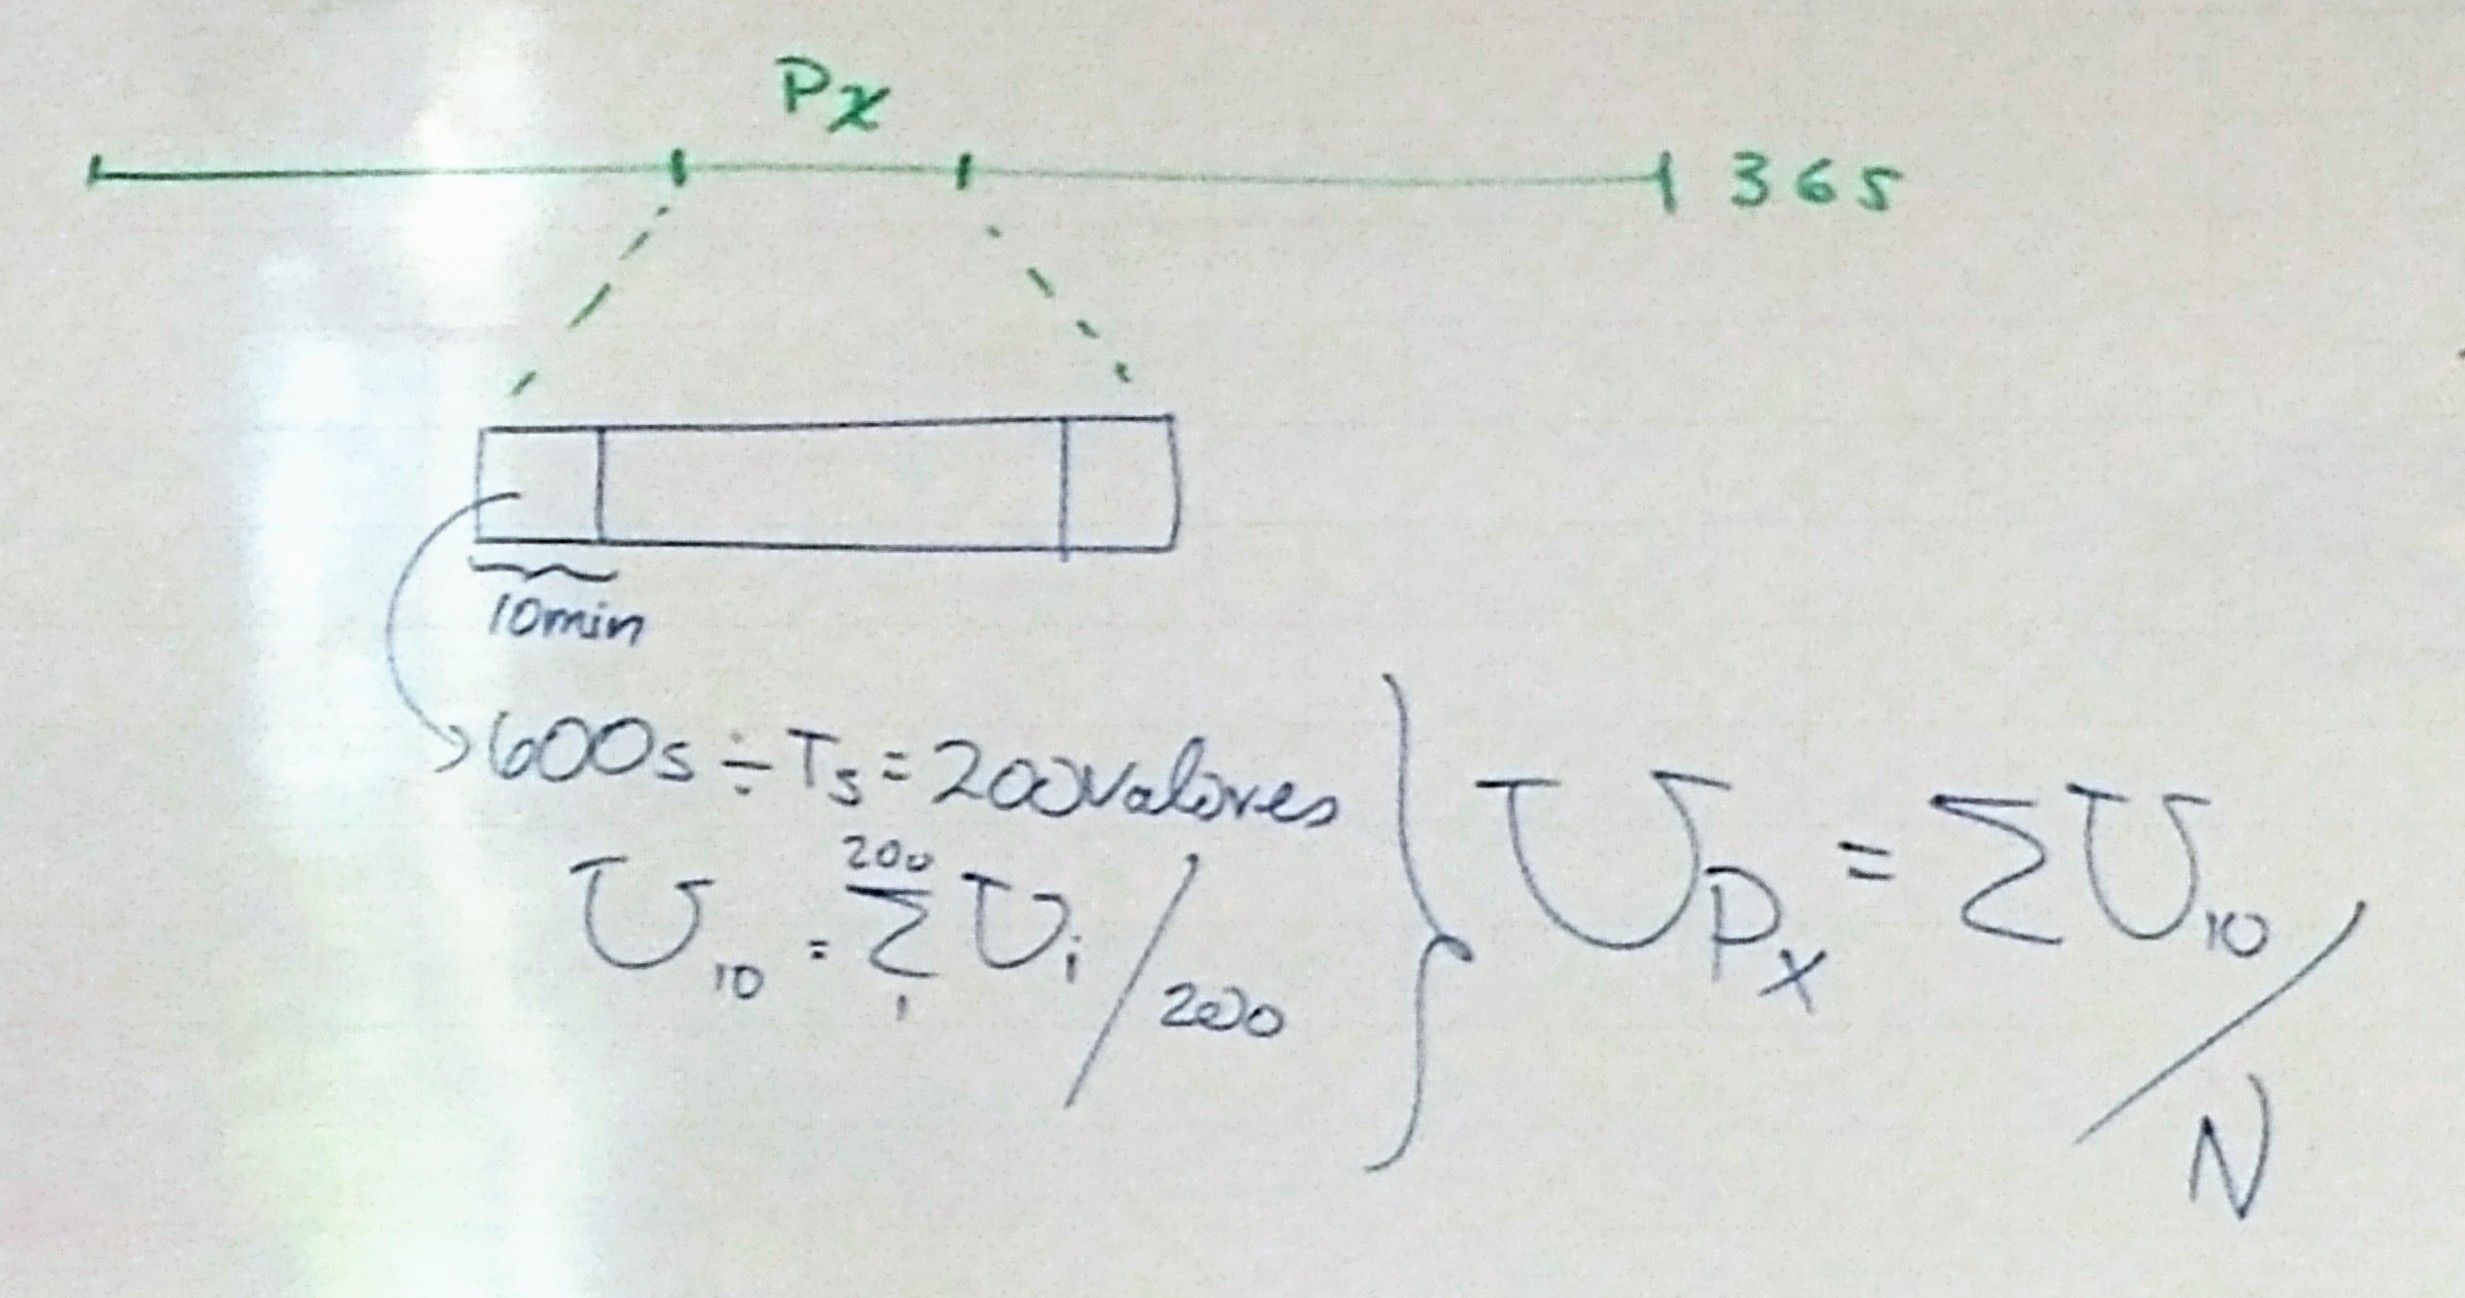 Px
365
10min
600s ÷ Ts = 200 valores
U₁₀ = ²⁰⁰Σ₁ Uᵢ / 200
U_Px = Σ U₁₀ / N